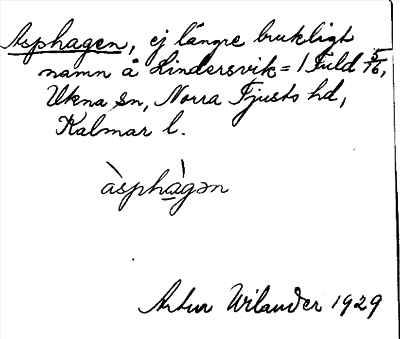 Asphagen, ej längre brukligt
namn å Lindersvik = 1 Fuld 5/16,
Ukna sn, Norra Tjusts hd,
Kalmar l.
àsphàgən
Artur Wilander 1929